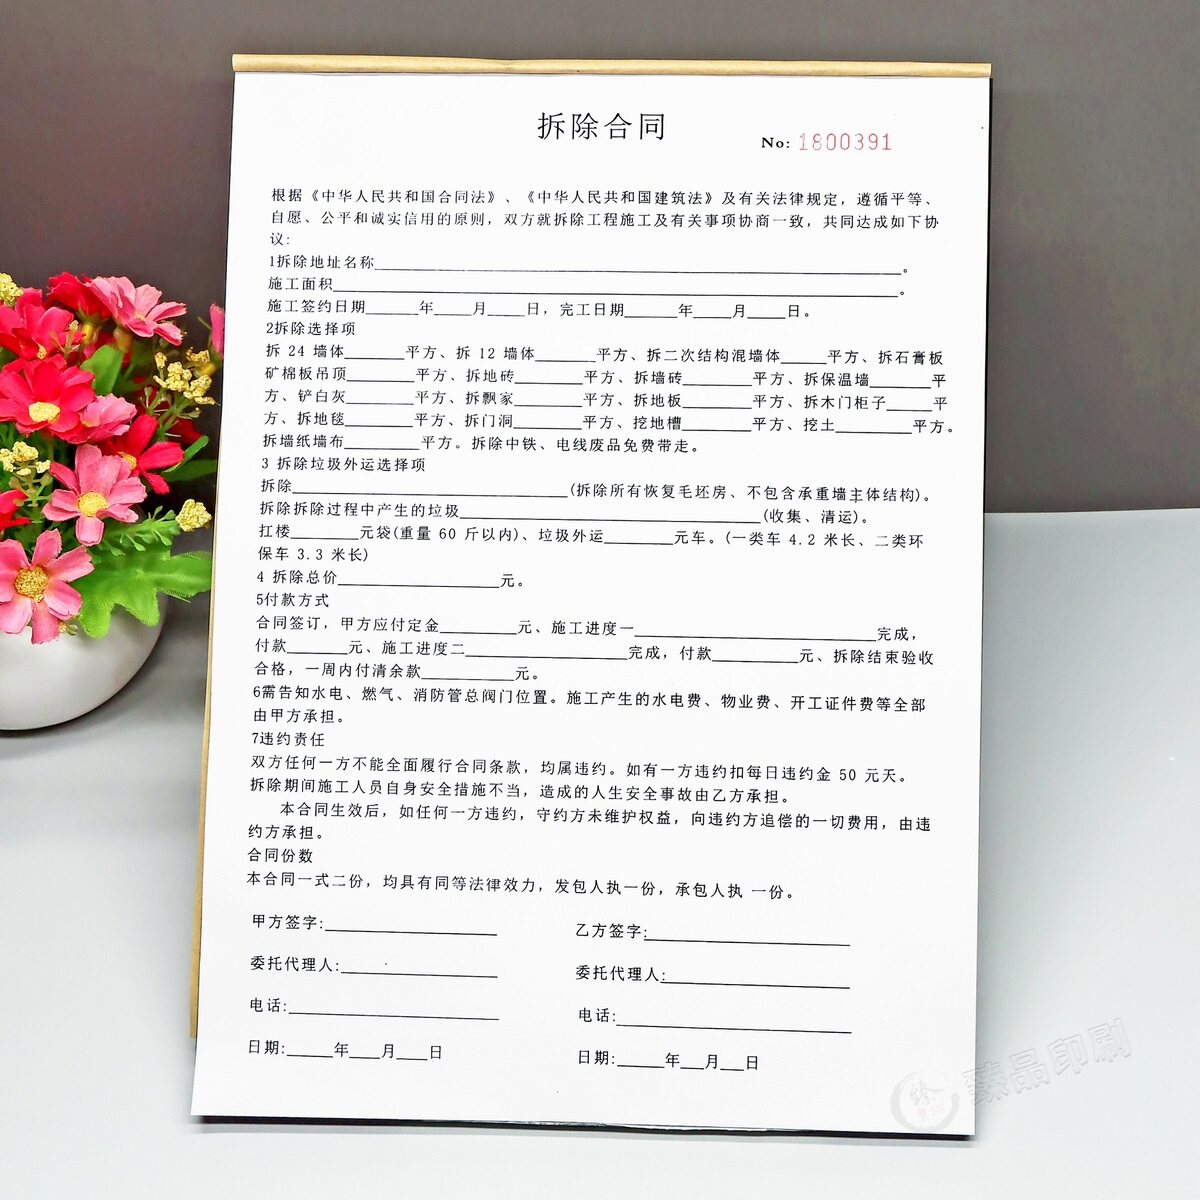 拆除合同
No: 1800391
根据《中华人民共和国合同法》、《中华人民共和国建筑法》及有关法律规定，遵循平等、
自愿、公平和诚实信用的原则，双方就拆除工程施工及有关事项协商一致，共同达成如下协
议:
1拆除地址名称____。
施工面积____。
施工签约日期____年____月____日，完工日期____年____月____日。
2拆除选择项
拆 24 墙体____平方、拆 12 墙体____平方、拆二次结构混墙体____平方、拆石膏板
矿棉板吊顶____平方、拆地砖____平方、拆墙砖____平方、拆保温墙____平
方、铲白灰____平方、拆飘家____平方、拆地板____平方、拆木门柜子____平
方、拆地毯____平方、拆门洞____平方、挖地槽____平方、挖土____平方。
拆墙纸墙布____平方。拆除中铁、电线废品免费带走。
3 拆除垃圾外运选择项
拆除____(拆除所有恢复毛坯房、不包含承重墙主体结构)。
拆除拆除过程中产生的垃圾____(收集、清运)。
扛楼____元袋(重量 60 斤以内)、垃圾外运____元车。(一类车 4.2 米长、二类环
保车 3.3 米长)
4 拆除总价____元。
5付款方式
合同签订，甲方应付定金____元、施工进度一____完成，
付款____元、施工进度二____完成，付款____元、拆除结束验收
合格，一周内付清余款____元。
6需告知水电、燃气、消防管总阀门位置。施工产生的水电费、物业费、开工证件费等全部
由甲方承担。
7违约责任
双方任何一方不能全面履行合同条款，均属违约。如有一方违约扣每日违约金 50 元天。
拆除期间施工人员自身安全措施不当，造成的人生安全事故由乙方承担。
本合同生效后，如任何一方违约，守约方未维护权益，向违约方追偿的一切费用，由违
约方承担。
合同份数
本合同一式二份，均具有同等法律效力，发包人执一份，承包人执 一份。
甲方签字:____ 乙方签字:____
委托代理人:____ 委托代理人:____
电话:____ 电话:____
日期:____年____月____日 日期:____年____月____日
臻品印刷